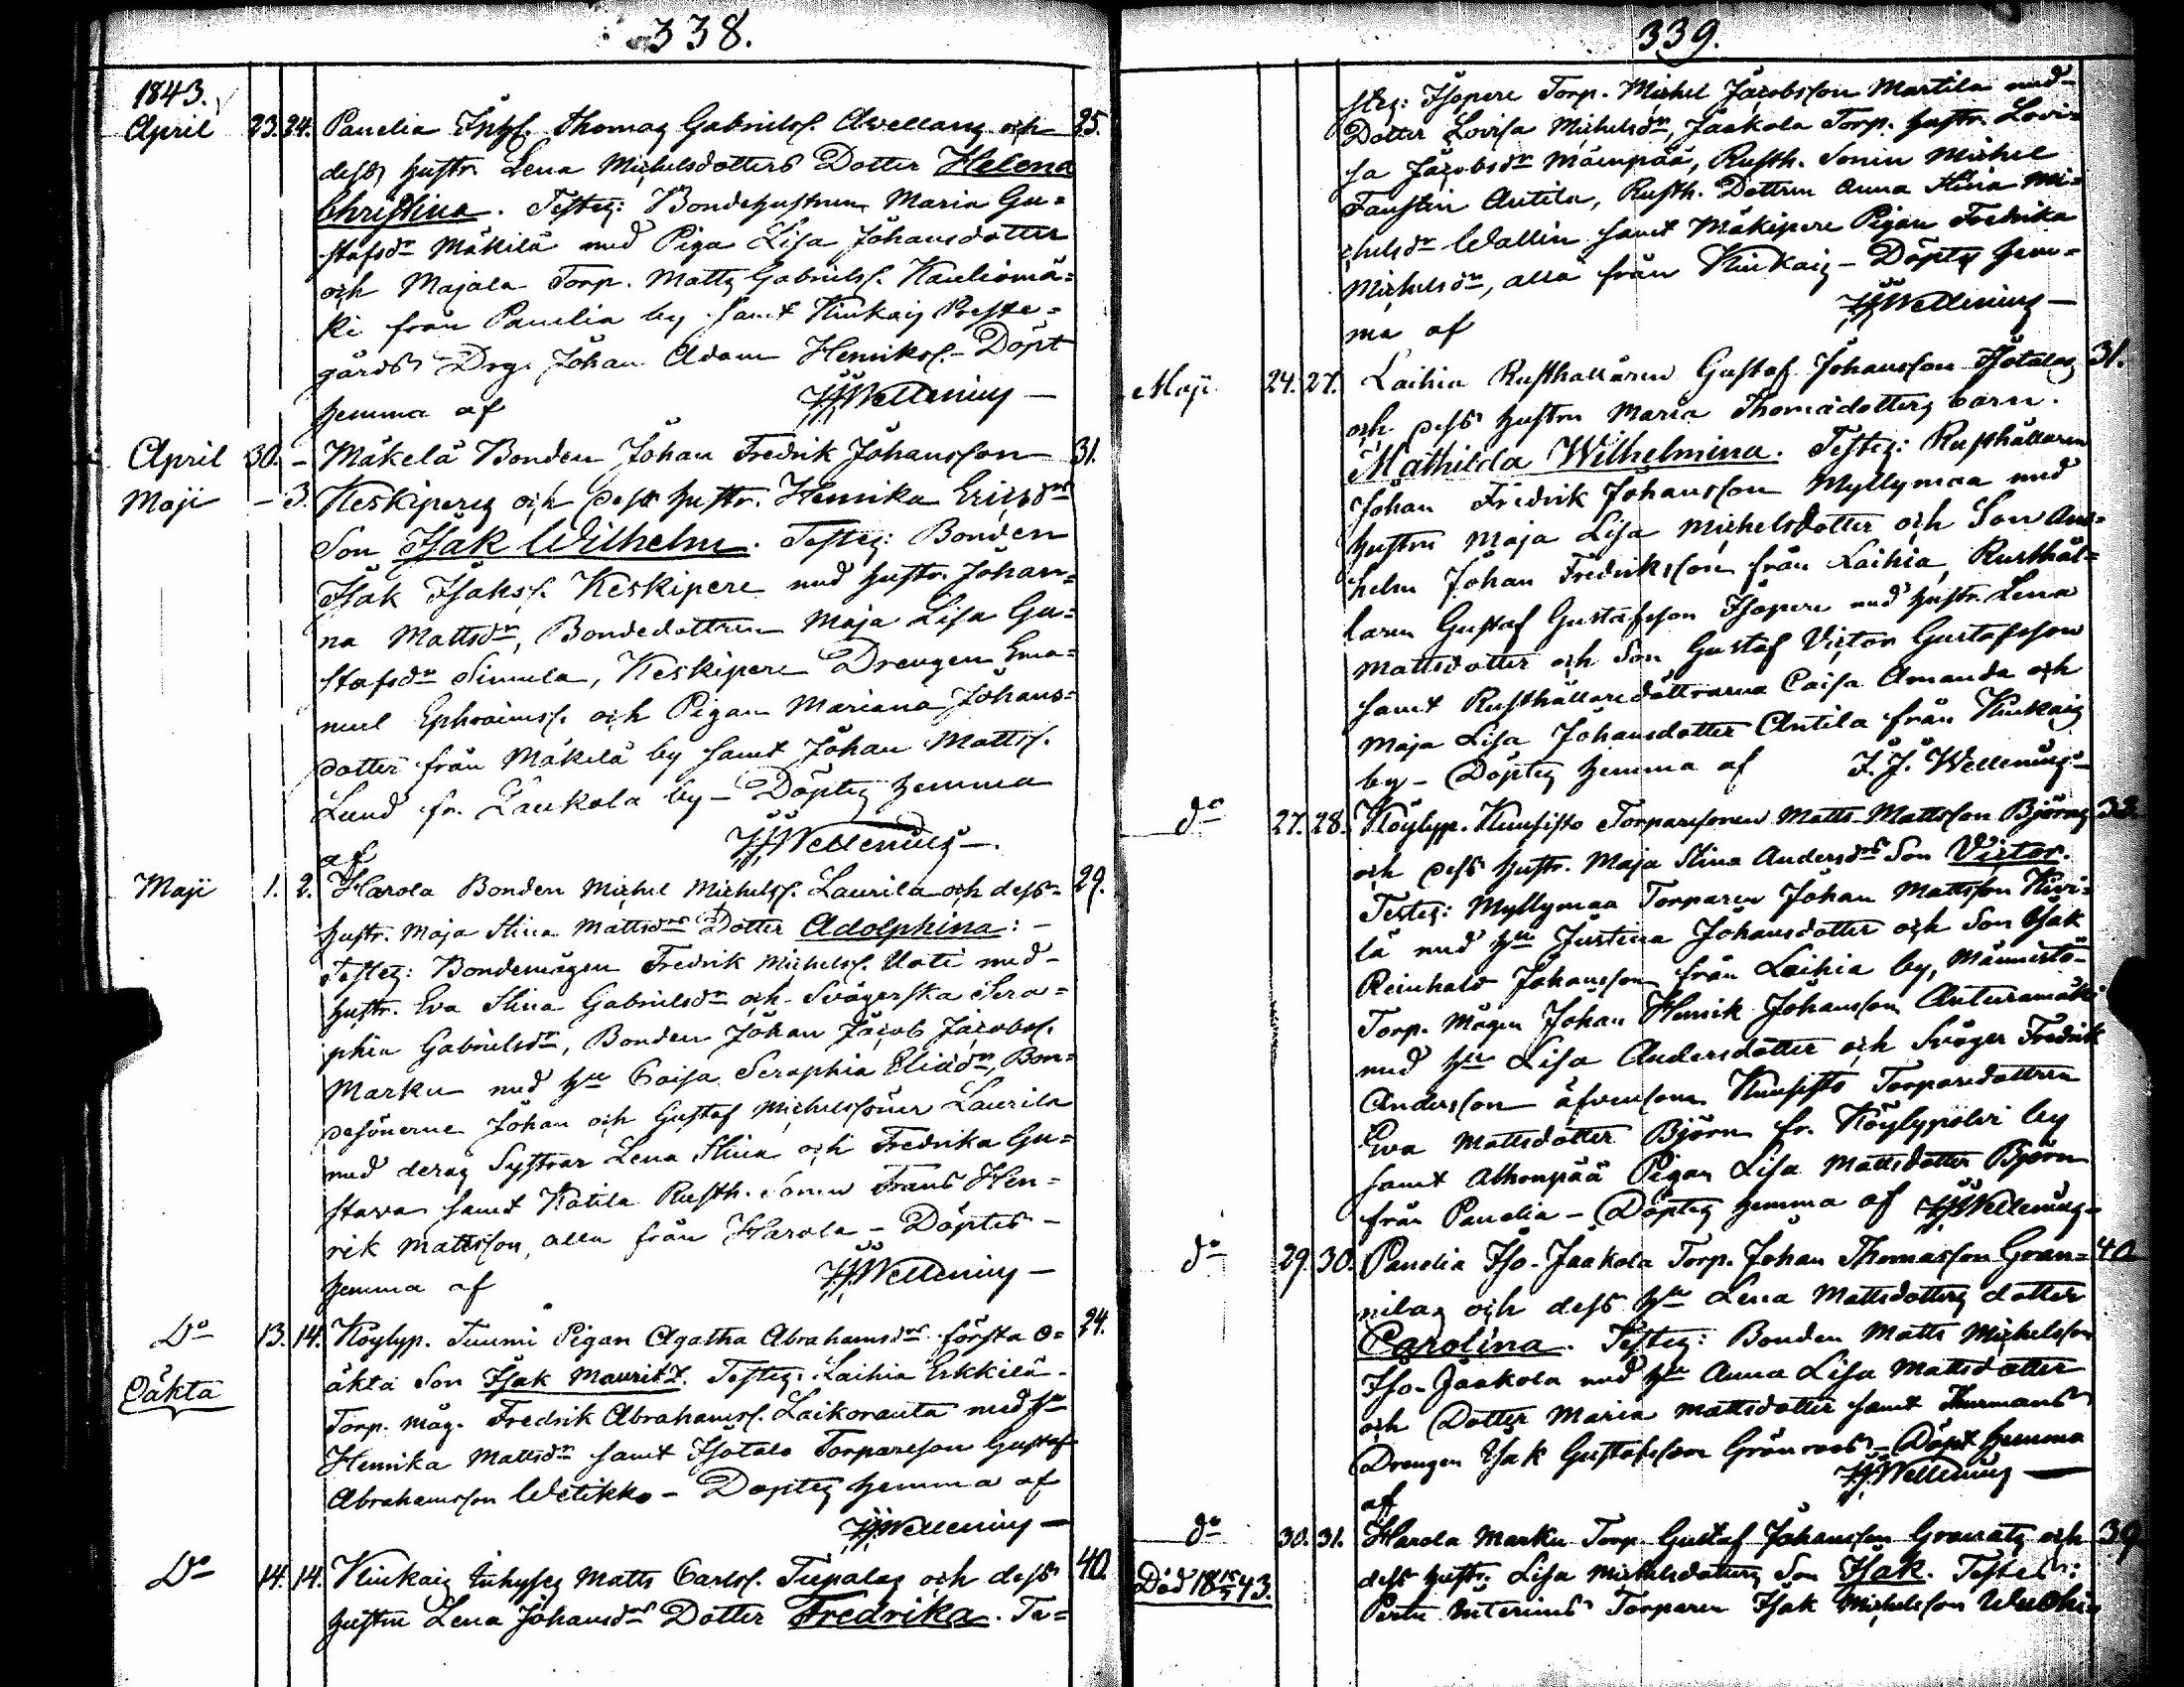 338.
1843.
April 23. 24. Panelia Inhs. Thomas Gabrielss. Avellans och 25.
dess hustr. Lena Michelsdotters Dotter Helena
Christina. Testes: Bondehustrun Maria Gu=
stafsdr Mäkilä med Piga Lisa Johansdotter
och Majala Torp. Matts Gabrielss. Kauliomä=
ki från Panelia by samt Kiukais Preste=
gårds Drg. Johan Adam Henrikss. - Döpt
hemma af JJWellenius -
April 30. - Mäkelä Bonden Johan Fredrik Johansson 31.
Maji - 3. Keskiperes och dess hustr. Henrika Ericsdrs
Son Isak Wilhelm. Testes: Bonden
Isak Isakss. Keskipere med hustr. Johan=
na Mattsdr, Bondedottren Maja Lisa Gu=
stafsdr Simula, Keskipere Drengen Ema=
nuel Ephraimss. och Pigan Mariana Johans=
dotter från Mäkelä by samt Johan Mattss.
Lund fr. Laukola by - Döptes hemma
af JJWellenius -.
Maji 1. 2. Harola Bonden Michel Michelss. Laurila och dess 29.
hustr. Maja Stina Mattsdrs Dotter Adolphina: -
Testes: Bondemågen Fredrik Michelss. Uoti med
hustr. Eva Stina Gabrielsdr och Svägerska Sera=
phia Gabrielsdr, Bonden Johan Jacob Jacobss.
Marku med hu Caisa Seraphia Eliædr, Bon=
desönerne Johan och Gustaf Michelssöner Laurila
med deras Systrar Lena Stina och Fredrika Gu=
stava samt Katila Rusth. Sonen Frans Hen=
rik Mattsson, alla från Harola - Döptes -
hemma af JJWellenius -
Do 13. 14. Köylyp. Tuomi Pigan Agatha Abrahamsdrs första o= 24.
Oäkta äkta Son Isak Mauritz. Testes: Laihia Erkkilä
Torp. måg. Fredrik Abrahamss. Laikoranta med hu
Henrika Mattsdr samt Isotalo Torpareson Gustaf
Abrahamsson Wetikko - Döptes hemma af
JJWellenius -
Do 14. 14. Kiukais Inhyses Matts Carlss. Tiepalas och dess 40.
hustru Lena Johansdrs Dotter Fredrika. Te=
339.
stes: Isopere Torp. Michel Jacobsson Martila med
Dotter Lovisa Michelsdr, Jaakola Torp. hustr. Lovi=
sa Jacobsdr Mäenpää, Rusth. Sonen Michel
Faustin Antila, Rusth. Dottren Anna Stina Mi=
chelsdr Wallin samt Mäkipere Pigan Fredrika
Michelsdr, alla från Kiukais - Döptes hem=
ma af JJWellenius -
Maji 24. 27. Laihia Rusthållaren Gustaf Johansson Isotalos 31.
och dess hustru Maria Thomædotters barn.
Mathilda Wilhelmina. Testes: Rusthållaren
Johan Fredrik Johansson Myllymaa med
hustru Maja Lisa Michelsdotter och Son An=
helm Johan Fredriksson från Laihia, Rusthål=
laren Gustaf Gustafsson Isopere med hustr. Lena
Mattsdotter och Son Gustaf Victor Gustafsson
samt Rusthållaredöttrarna Caisa Amanda och
Maja Lisa Johansdotter Antila från Kiukais
by - Döptes hemma af J. J. Wellenius -
do 27. 28. Köylyp. Kuusisto Torparesonen Matts Mattsson Björns 32.
och dess hustr. Maja Stina Andersdrs Son Victor.
Testes: Myllymaa Torparen Johan Mattsson Kivi=
lä med hu Justina Johansdotter och Son Isak
Reinhold Johansson från Laihia by, Männistö
Torp. Mågen Johan Henrik Johansson Anturamäki
med hu Lisa Andersdotter och Svåger Fredrik
Andersson äfvensom Kuusisto Torparedottren
Eva Mattsdotter Björn fr. Köylypolvi by
samt Alhonpää Pigan Lisa Mattsdotter Björn
från Panelia - Döptes hemma af JJWellenius
do 29. 30. Panelia Iso-Jaakola Torp. Johan Thomasson Gran= 40
nilas och dess hu Lena Mattsdotters dotter
Carolina. Testes: Bonden Matts Michelsson
Iso-Jaakola med hu Anna Lisa Mattsdotter
och Dotter Maria Mattsdotter samt Thurmans
Drengen Isak Gustafsson Grönroos - Döpt hemma
af JJWellenius -
do 30. 31. Harola Marku Torp. Gustaf Johansson Granats och 39
Död 18 15/7 43. dess hustr. Lisa Michelsdotters Son Isak. Testes:
Pertu Interims Torparen Isak Michelsson